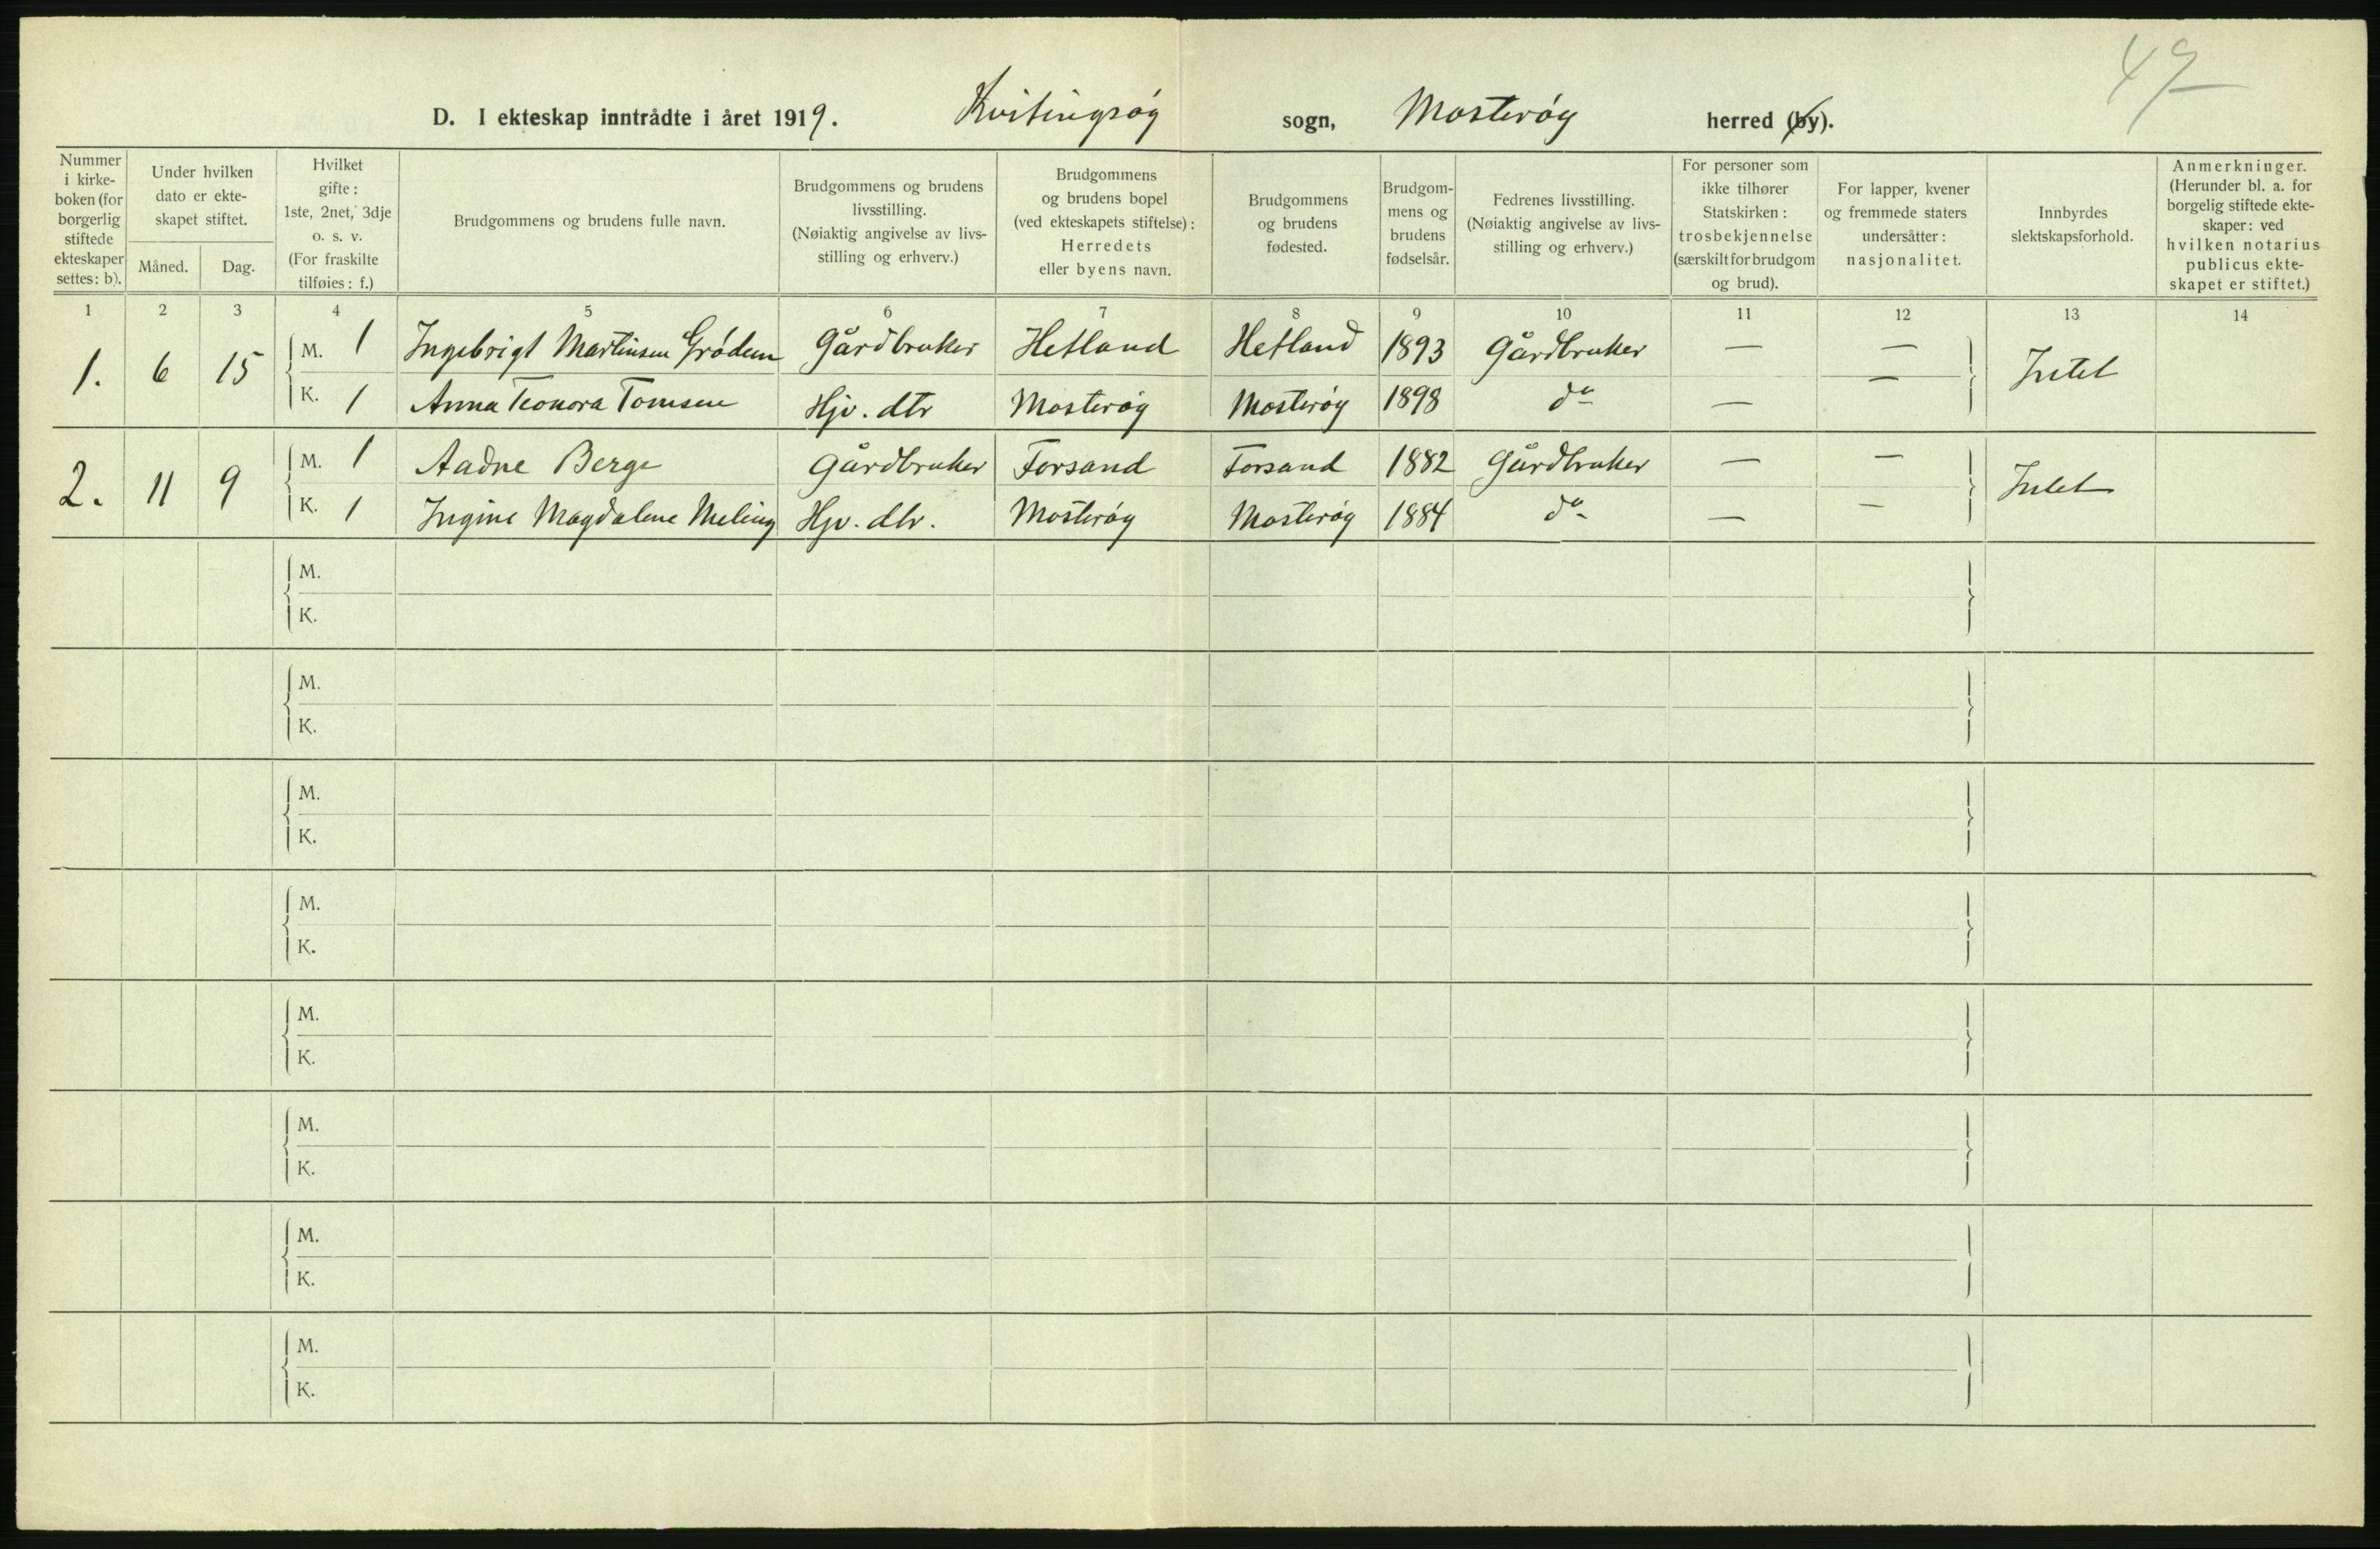 47
D. I ekteskap inntrådte i året 1919. Kvitingsøy sogn, Mosterøy herred (by).
Nummer i kirkeboken (for borgerlig stiftede ekteskaper settes: b).
Under hvilken dato er ekteskapet stiftet.
Måned. Dag.
Hvilket gifte: 1ste, 2net, 3dje o. s. v. (For fraskilte tilføies: f.)
Brudgommens og brudens fulle navn.
Brudgommens og brudens livsstilling. (Nøiaktig angivelse av livsstilling og erhverv.)
Brudgommens og brudens bopel (ved ekteskapets stiftelse): Herredets eller byens navn.
Brudgommens og brudens fødested.
Brudgommens og brudens fødselsår.
Fedrenes livsstilling. (Nøiaktig angivelse av livsstilling og erhverv.)
For personer som ikke tilhører Statskirken: trosbekjennelse (særskilt for brudgom og brud).
For lapper, kvener og fremmede staters undersåtter: nasjonalitet.
Innbyrdes slektskapsforhold.
Anmerkninger. (Herunder bl. a. for borgelig stiftede ekteskaper: ved hvilken notarius publicus ekteskapet er stiftet.)
1 2 3 4 5 6 7 8 9 10 11 12 13 14
1. 6 15 M. 1 Ingebrigt Martinsen Grødem Gårdbruker Hetland Hetland 1893 Gårdbruker — — Intet
K. 1 Anna Teonora Tomsen Hjv. dtr Mosterøy Mosterøy 1898 do — —
2. 11 9 M. 1 Aadne Berge Gårdbruker Forsand Forsand 1882 Gårdbruker — — Intet
K. 1 Ingine Magdalene Meling Hjv. dtr. Mosterøy Mosterøy 1884 do — —
M.
K.
M.
K.
M.
K.
M.
K.
M.
K.
M.
K.
M.
K.
M.
K.